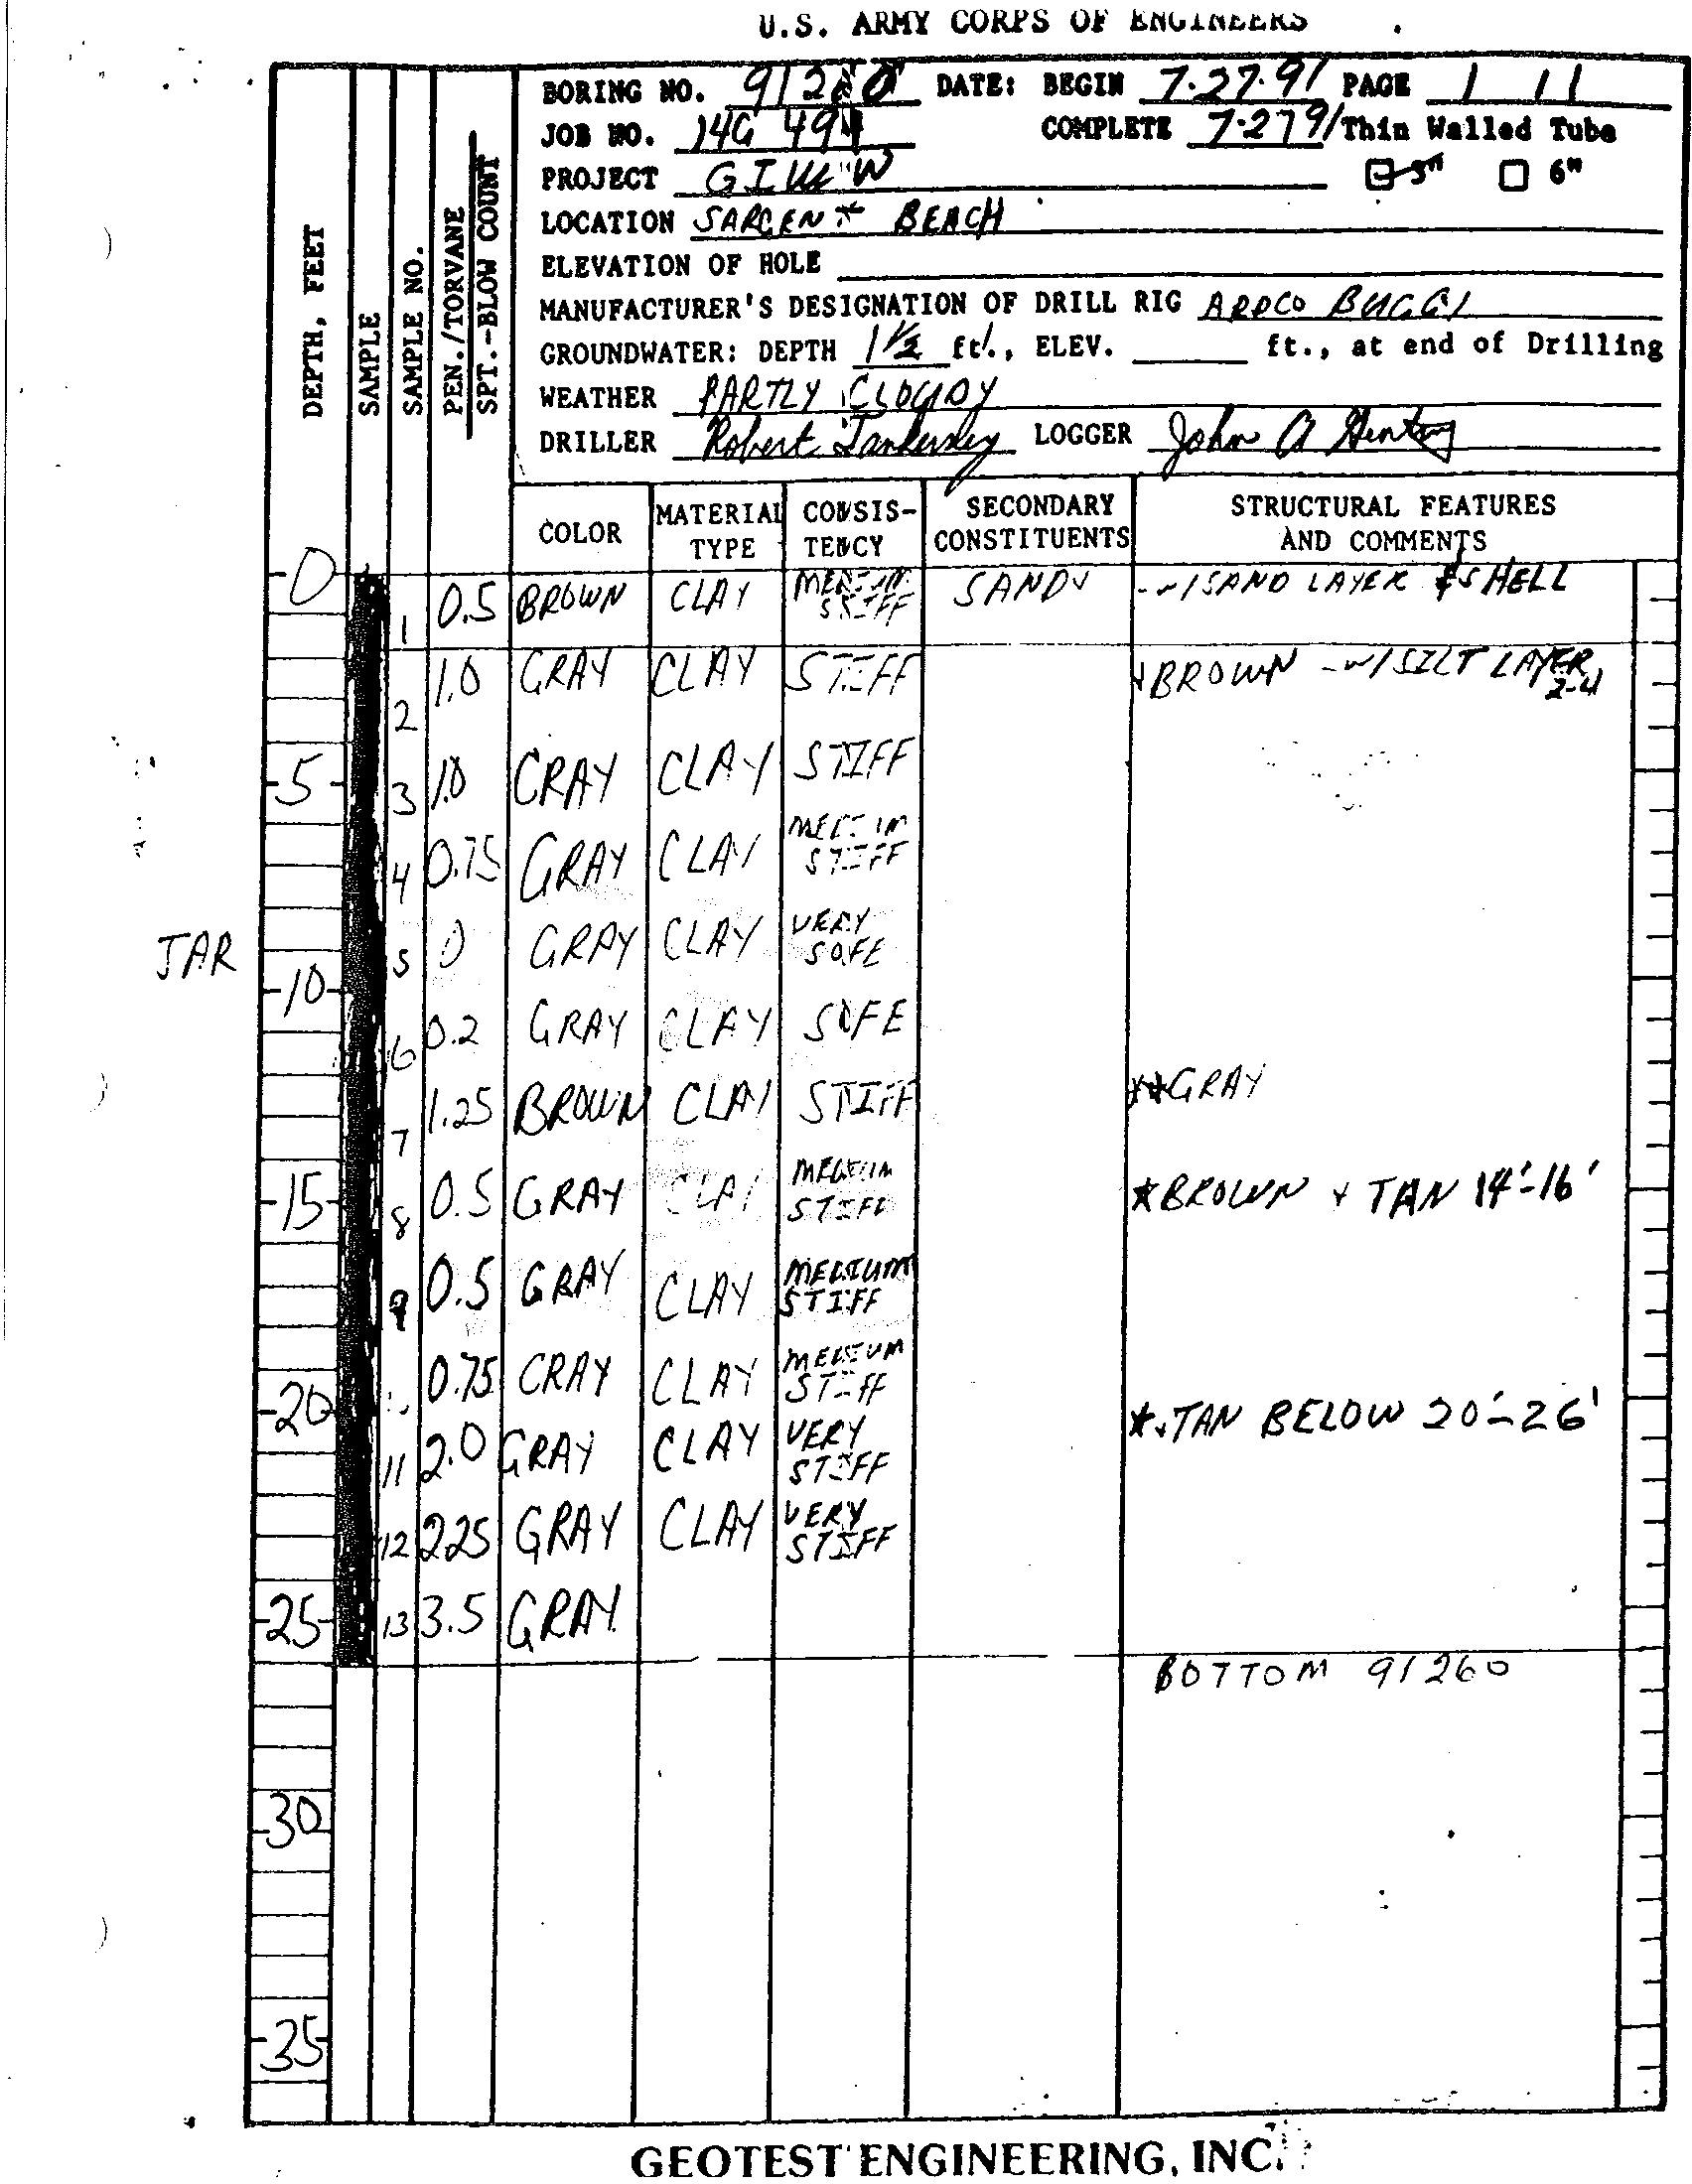 U.S. ARMY CORPS OF ENGINEERS
BORING NO. DATE: BEGIN 7-27-91 PAGE 1 / 1
JOB NO. 14G 494 COMPLETE 7-27 91 Thin Walled Tube
PROJECT GIWW 3" 6"
LOCATION SARGENT BEACH
ELEVATION OF HOLE
MANUFACTURER'S DESIGNATION OF DRILL RIG ARDCO BUGGY
GROUNDWATER: DEPTH 1 1/2 ft., ELEV. ft., at end of Drilling
WEATHER PARTLY CLOUDY
DRILLER Robert LOGGER John A
DEPTH, FEET
SAMPLE
SAMPLE NO.
PEN./TORVANE
SPT.-BLOW COUNT
COLOR MATERIAL TYPE CONSISTENCY SECONDARY CONSTITUENTS STRUCTURAL FEATURES AND COMMENTS
0
1 0.5 BROWN CLAY MEDIUM STIFF SANDY -w/SAND LAYER & SHELL
2 1.0 GRAY CLAY STIFF +BROWN -w/SILT LAYER 2-4
5 3 1.0 GRAY CLAY STIFF
4 0.75 GRAY CLAY MEDIUM STIFF
JAR 5 0 GRAY CLAY VERY SOFT
10
6 0.2 GRAY CLAY SOFT
7 1.25 BROWN CLAY STIFF *+GRAY
15 8 0.5 GRAY CLAY MEDIUM STIFF *BROWN + TAN 14'-16'
9 0.5 GRAY CLAY MEDIUM STIFF
0.75 GRAY CLAY MEDIUM STIFF
20 *+TAN BELOW 20'-26'
11 2.0 GRAY CLAY VERY STIFF
12 2.25 GRAY CLAY VERY STIFF
25 13 3.5 GRAY
BOTTOM 91260
30
35
GEOTEST ENGINEERING, INC.